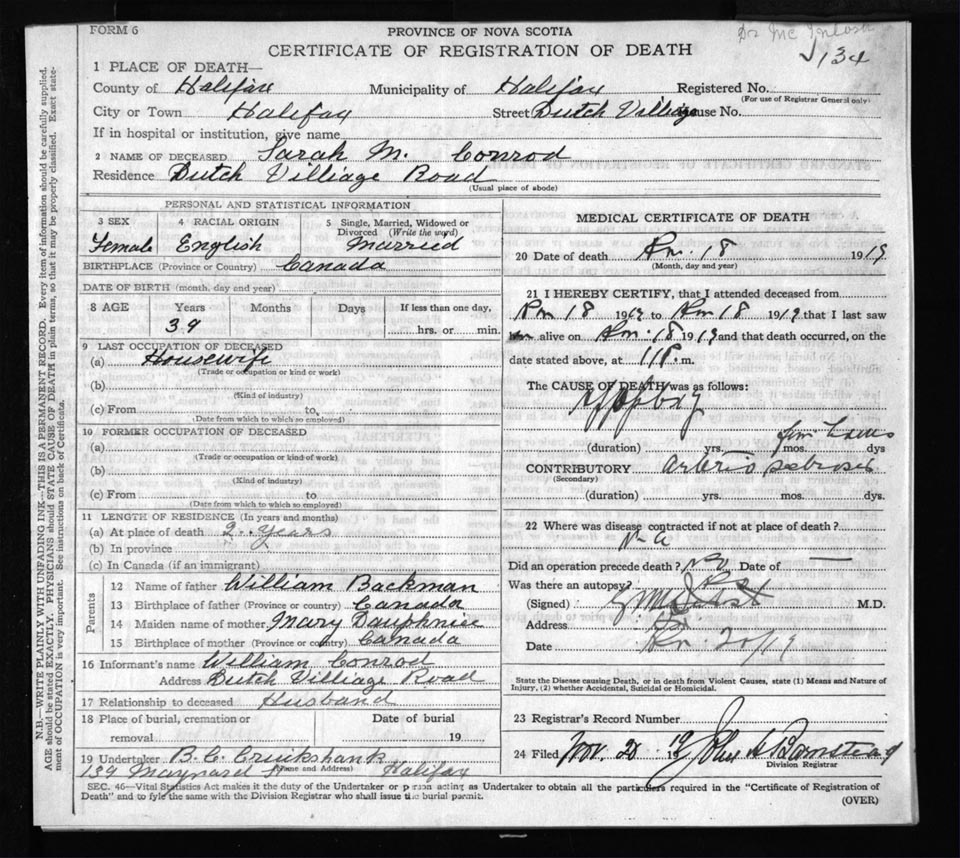 FORM 6
PROVINCE OF NOVA SCOTIA
Dr Mc Intosh
CERTIFICATE OF REGISTRATION OF DEATH
134
1 PLACE OF DEATH—
County of Halifax Municipality of Halifax Registered No.
(For use of Registrar General only)
City or Town Halifax Street Dutch Villiage House No.
If in hospital or institution, give name
2 NAME OF DECEASED Sarah M. Conrod
Residence Dutch Villiage Road
(Usual place of abode)
PERSONAL AND STATISTICAL INFORMATION
3 SEX 4 RACIAL ORIGIN 5 Single, Married, Widowed or Divorced (Write the word)
Female English Married
BIRTHPLACE (Province or Country) Canada
DATE OF BIRTH (month, day and year)
8 AGE Years Months Days If less than one day,
39 hrs. or min.
9 LAST OCCUPATION OF DECEASED
(a) Housewife
(Trade or occupation or kind of work)
(b)
(Kind of industry)
(c) From to
(Date from which to which so employed)
10 FORMER OCCUPATION OF DECEASED
(a)
(Trade or occupation or kind of work)
(b)
(Kind of industry)
(c) From to
(Date from which to which so employed)
11 LENGTH OF RESIDENCE (In years and months)
(a) At place of death 2 years
(b) In province
(c) In Canada (if an immigrant)
Parents
12 Name of father William Backman
13 Birthplace of father (Province or country) Canada
14 Maiden name of mother Mary Dauphnie
15 Birthplace of mother (Province or country) Canada
16 Informant's name William Conrod
Address Dutch Villiage Road
17 Relationship to deceased Husband
18 Place of burial, cremation or removal Date of burial
19
19 Undertaker B.C. Cruikshank
(Name and Address)
139 Maynard St Halifax
MEDICAL CERTIFICATE OF DEATH
20 Date of death 18 1919
(Month, day and year)
21 I HEREBY CERTIFY, that I attended deceased from
18 1919 to 18 1919 that I last saw
alive on 18 1919 and that death occurred, on the
date stated above, at 11 P. m.
The CAUSE OF DEATH was as follows:
(duration) yrs. mos. dys
CONTRIBUTORY Arterio sclerosis
(Secondary)
(duration) yrs. mos. dys.
22 Where was disease contracted if not at place of death?
Did an operation precede death? No Date of —
Was there an autopsy?
(Signed) M.D.
Address
Date 20/19
State the Disease causing Death, or in death from Violent Causes, state (1) Means and Nature of
Injury, (2) whether Accidental, Suicidal or Homicidal.
23 Registrar's Record Number
24 Filed Nov. 20 19
Division Registrar
SEC. 46—Vital Statistics Act makes it the duty of the Undertaker or person acting as Undertaker to obtain all the particulars required in the "Certificate of Registration of
Death" and to file the same with the Division Registrar who shall issue the burial permit.
(OVER)
N.B.—WRITE PLAINLY WITH UNFADING INK—THIS IS A PERMANENT RECORD. Every item of information should be carefully supplied.
AGE should be stated EXACTLY. PHYSICIANS should STATE CAUSE OF DEATH in plain terms, so that it may be properly classified. Exact state-
ment of OCCUPATION is very important. See instructions on back of Certificate.